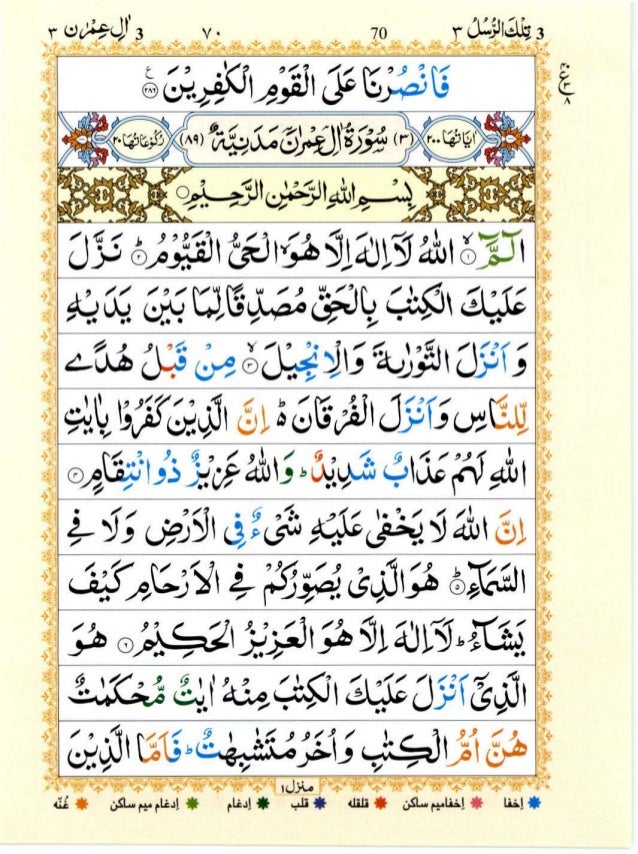 3 تِلْكَ الرُّسُلُ ٣ 70 ٧٠ 3 اٰلِ عِمْرٰن ٣
فَانْصُرْنَا عَلَى الْقَوْمِ الْكٰفِرِیْنَ ۝٢٨٦ ع
٤٠ ع ٨
اٰیَاتُهَا ٢٠٠ (٣) سُوْرَةُ اٰلِ عِمْرٰنَ مَدَنِیَّةٌ (٨٩) رُكُوْعَاتُهَا ٢٠
بِسْمِ اللهِ الرَّحْمٰنِ الرَّحِیْمِ ۝
الٓمَّٓ ۝١ۙ اللهُ لَاۤ اِلٰهَ اِلَّا هُوَ ۙ الْحَیُّ الْقَیُّوْمُ ۝٢ؕ نَزَّلَ
عَلَیْكَ الْكِتٰبَ بِالْحَقِّ مُصَدِّقًا لِّمَا بَیْنَ یَدَیْهِ
وَ اَنْزَلَ التَّوْرٰىةَ وَ الْاِنْجِیْلَ ۝٣ۙ مِنْ قَبْلُ هُدًی
لِّلنَّاسِ وَ اَنْزَلَ الْفُرْقَانَ ؕ۬ اِنَّ الَّذِیْنَ كَفَرُوْا بِاٰیٰتِ
اللهِ لَهُمْ عَذَابٌ شَدِیْدٌ ؕ وَ اللهُ عَزِیْزٌ ذُو انْتِقَامٍ ۝٤
اِنَّ اللهَ لَا یَخْفٰی عَلَیْهِ شَیْءٌ فِی الْاَرْضِ وَ لَا فِی
السَّمَآءِ ۝٥ؕ هُوَ الَّذِیْ یُصَوِّرُكُمْ فِی الْاَرْحَامِ كَیْفَ
یَشَآءُ ؕ لَاۤ اِلٰهَ اِلَّا هُوَ الْعَزِیْزُ الْحَكِیْمُ ۝٦ هُوَ
الَّذِیْۤ اَنْزَلَ عَلَیْكَ الْكِتٰبَ مِنْهُ اٰیٰتٌ مُّحْكَمٰتٌ
هُنَّ اُمُّ الْكِتٰبِ وَ اُخَرُ مُتَشٰبِهٰتٌ ؕ فَاَمَّا الَّذِیْنَ
منزل ١
اِخفا اِخفامیم ساکن قلقله قلب اِدغام اِدغام میم ساکن غُنّه